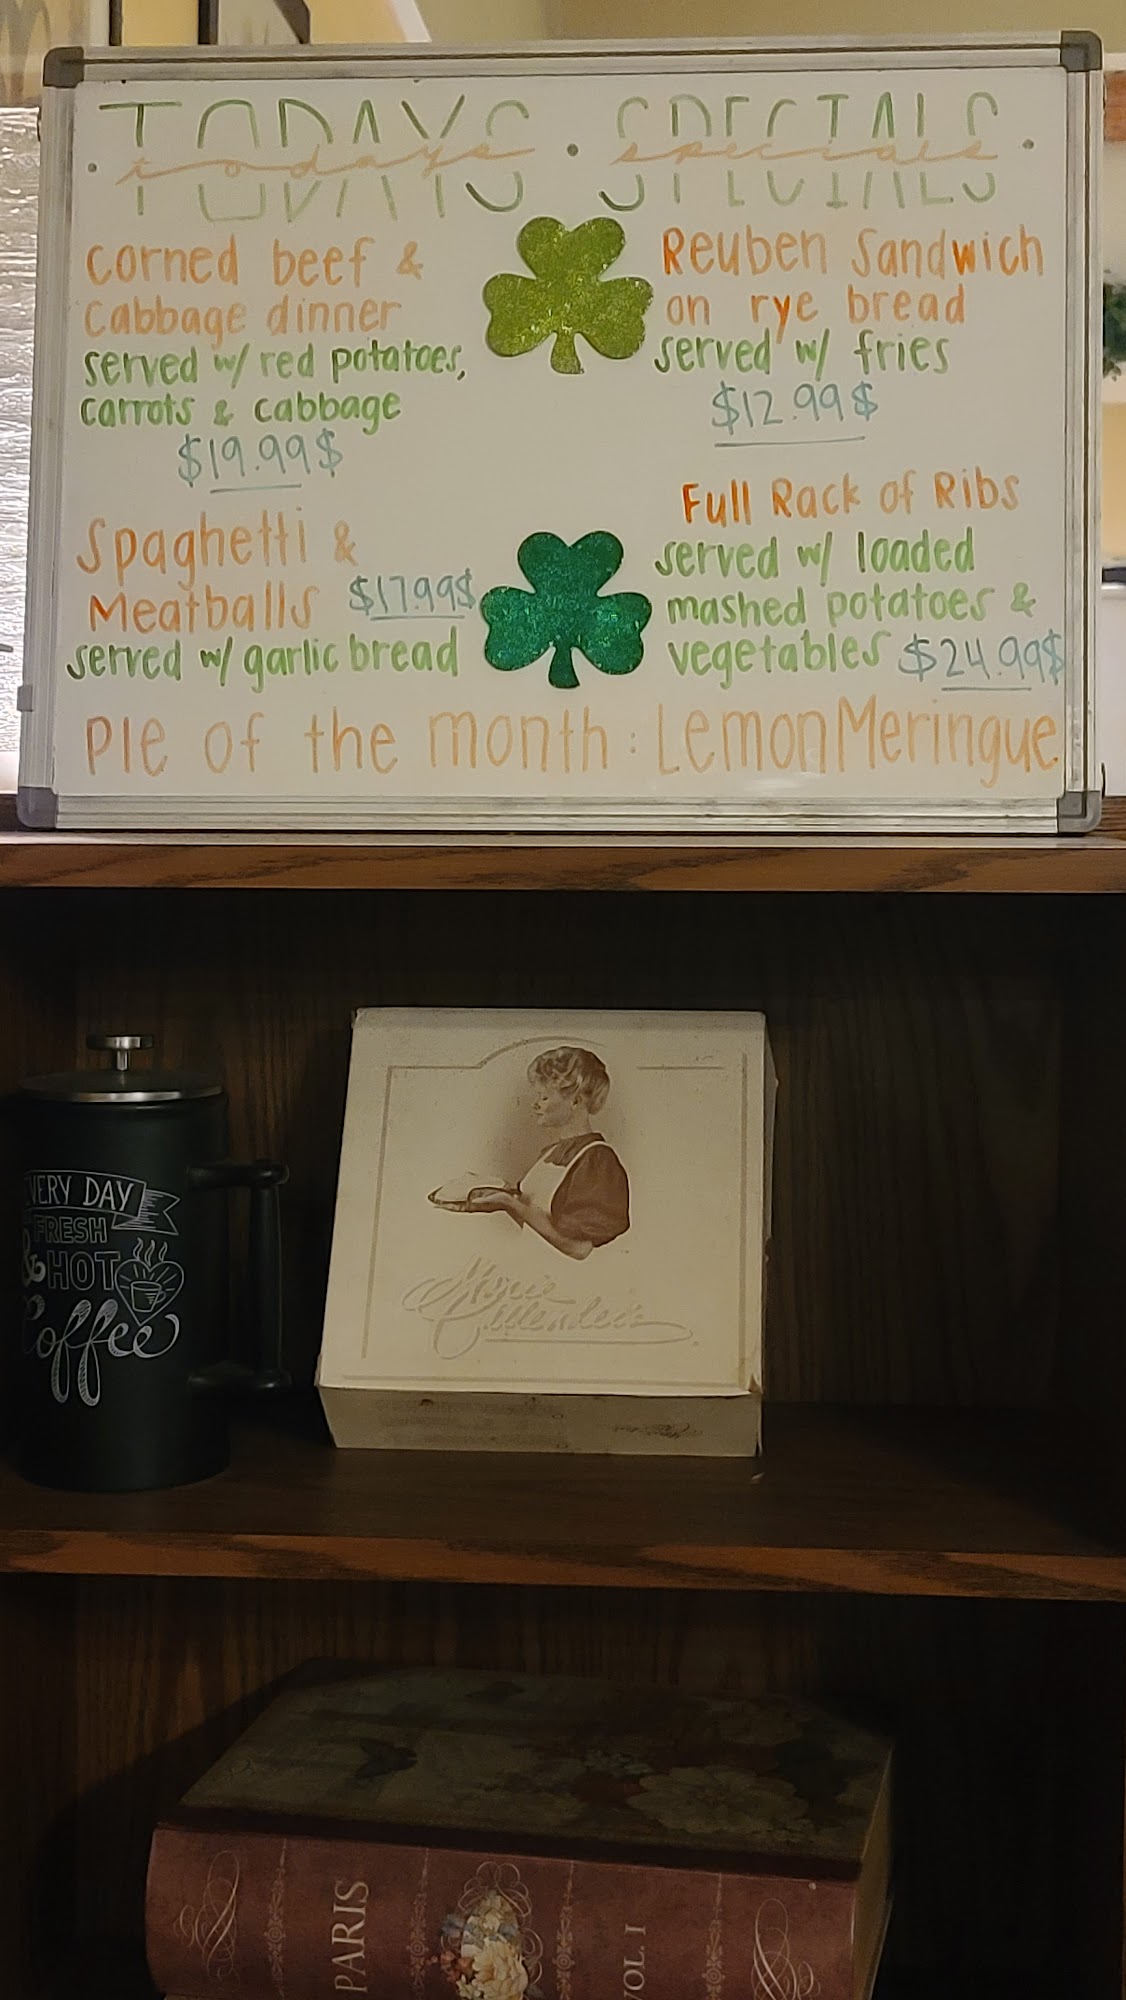 TODAYS • SPECIALS
todays specials
Corned beef &
Cabbage dinner
served w/ red potatoes,
carrots & cabbage
$19.99$
Reuben Sandwich
on rye bread
served w/ fries
$12.99$
Spaghetti &
Meatballs $17.99$
served w/ garlic bread
Full Rack of Ribs
served w/ loaded
mashed potatoes &
vegetables $24.99$
PIE of the month: Lemon Meringue
EVERY DAY
FRESH
& HOT
Coffee
Marie
Callender's
PARIS
VOL. I